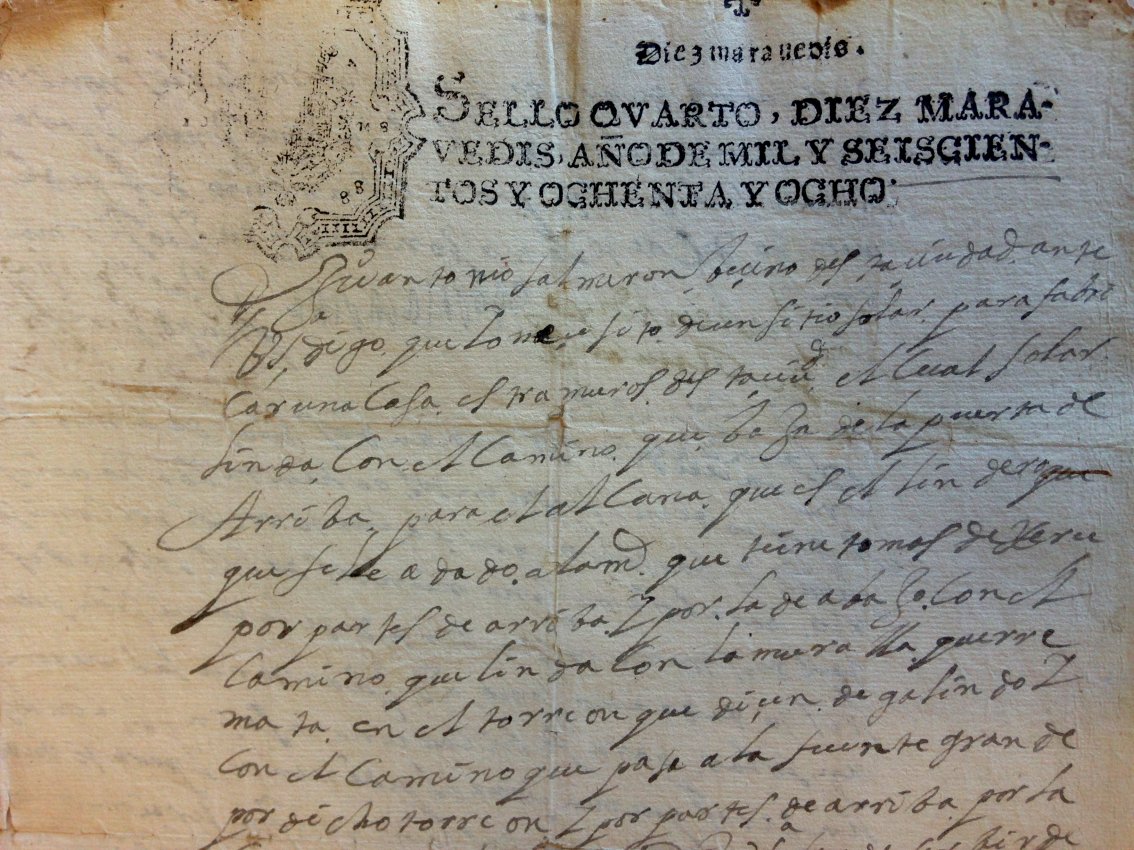 Diez maravedis.
SELLO QVARTO, DIEZ MARA-
VEDIS, AÑO DE MIL Y SEISCIEN-
TOS Y OCHENTA Y OCHO.
88
Ju.o Antonio salmeron, becino desta ciudad ante
Vs. digo. que Yo necesito. de un sitio solar. para fabri
car una Casa, estramuros. desta ciud.d el Cual solar
linda, Con el Camino. que baja de la puerta de
Arriba, para el alcana. que es el lindero
que se le a dado. a la md. que tiene tomas de Xere
por partes de arriba. Y por. la de abajo. Con el
Camino. que linda con la muralla. que rre
mata. en el torreon que diçen. de galindo Y
Con el Camino que pasa a la fuente grande
por dicho torreon Y por partes. de arriba. por la